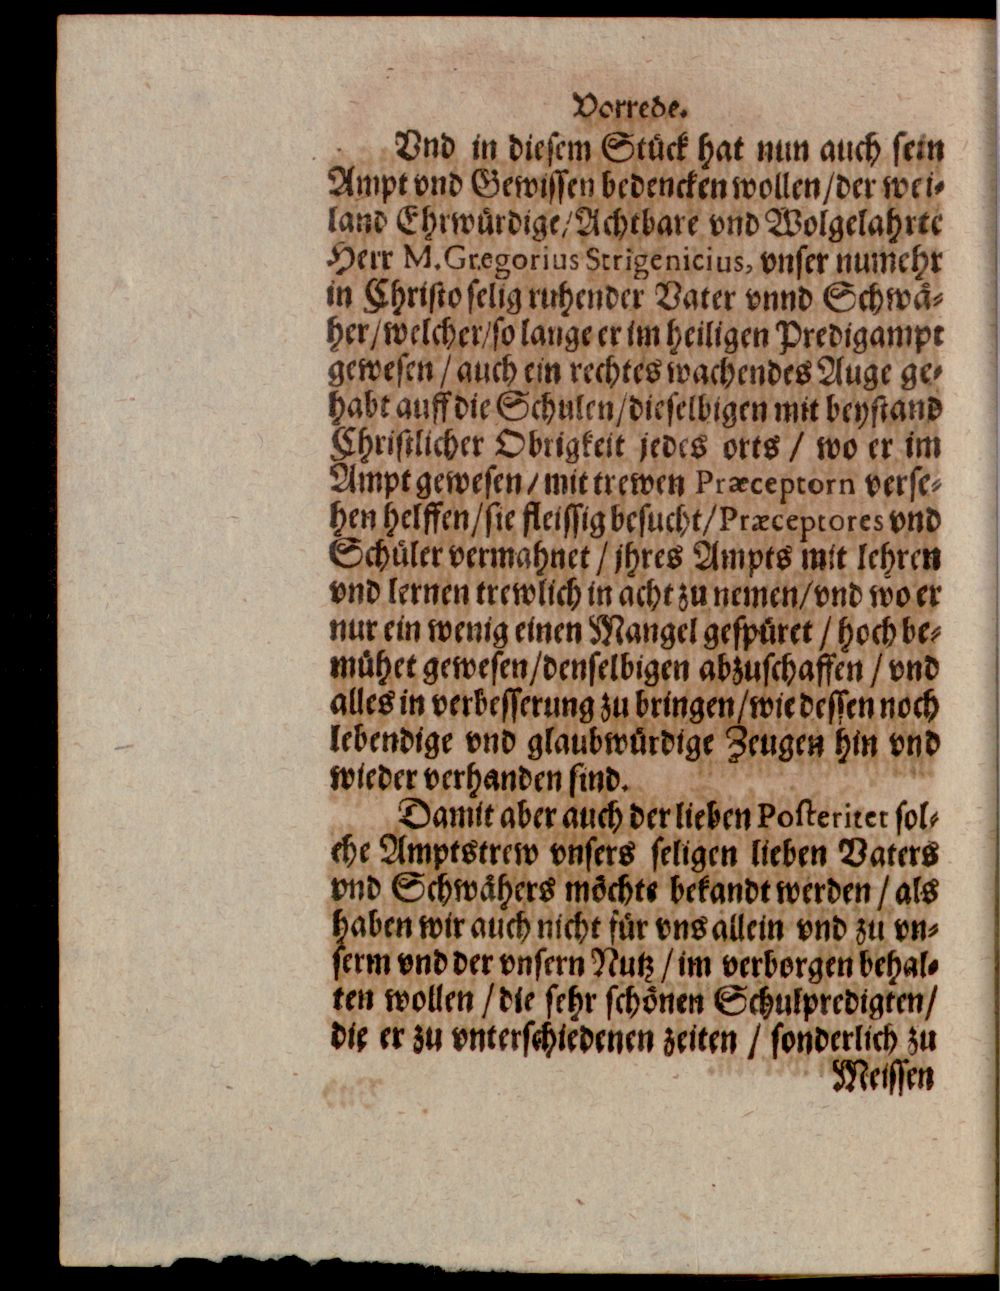 Vorrede.
Vnd in diesem Stück hat nun auch sein
Ampt vnd Gewissen bedencken wollen/der wei-
land Ehrwürdige/Achtbare vnd Wolgelahrte
Herr M. Gregorius Strigenicius, vnser numehr
in Christo selig ruhender Vater vnnd Schwä-
her/welcher/so lange er im heiligen Predigampt
gewesen / auch ein rechtes wachendes Auge ge-
habt auff die Schulen/dieselbigen mit beystand
Christlicher Obrigkeit jedes orts / wo er im
Ampt gewesen / mit trewen Præceptorn verse-
hen helffen/sie fleissig besucht/Præceptores vnd
Schüler vermahnet / jhres Ampts mit lehren
vnd lernen trewlich in acht zu nemen/vnd wo er
nur ein wenig einen Mangel gespüret / hoch be-
mühet gewesen/denselbigen abzuschaffen / vnd
alles in verbesserung zu bringen/wie dessen noch
lebendige vnd glaubwürdige Zeugen hin vnd
wieder verhanden sind.
Damit aber auch der lieben Posteritet sol-
che Amptstrew vnsers seligen lieben Vaters
vnd Schwähers möchte bekandt werden / als
haben wir auch nicht für vns allein vnd zu vn-
serm vnd der vnsern Nutz / im verborgen behal-
ten wollen / die sehr schönen Schulpredigten/
die er zu vnterschiedenen zeiten / sonderlich zu
Meissen